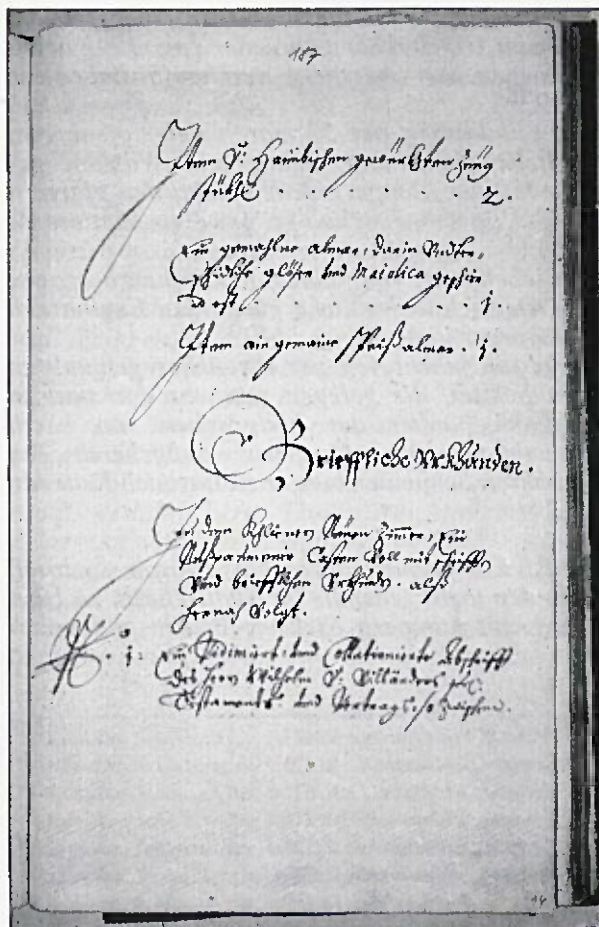 187
Item V: Haimbischen gewürckhten Zeüg
stükhl . . . . . . 2.
Ein gemahlne almar, darin Vndter-
schidliche glöser vnd Maiolica geschier
id est . . . . . . 1.
Item ain gemaine Speiß almar . 1.
Brieffliche Vrkhunden.
In dem Khleinen Neuen Zimmer, ein
Nußpaumener Casten Voll mit schrifften
Vnd briefflichen Vrkhunden. alß
hernach Volgt.
N.º 1. Ein Vidimierte vnd Collationierte Abschrifft
des Herrn Wilhelm V: Villanders
Testaments vnd Vertrags, so zwischen.